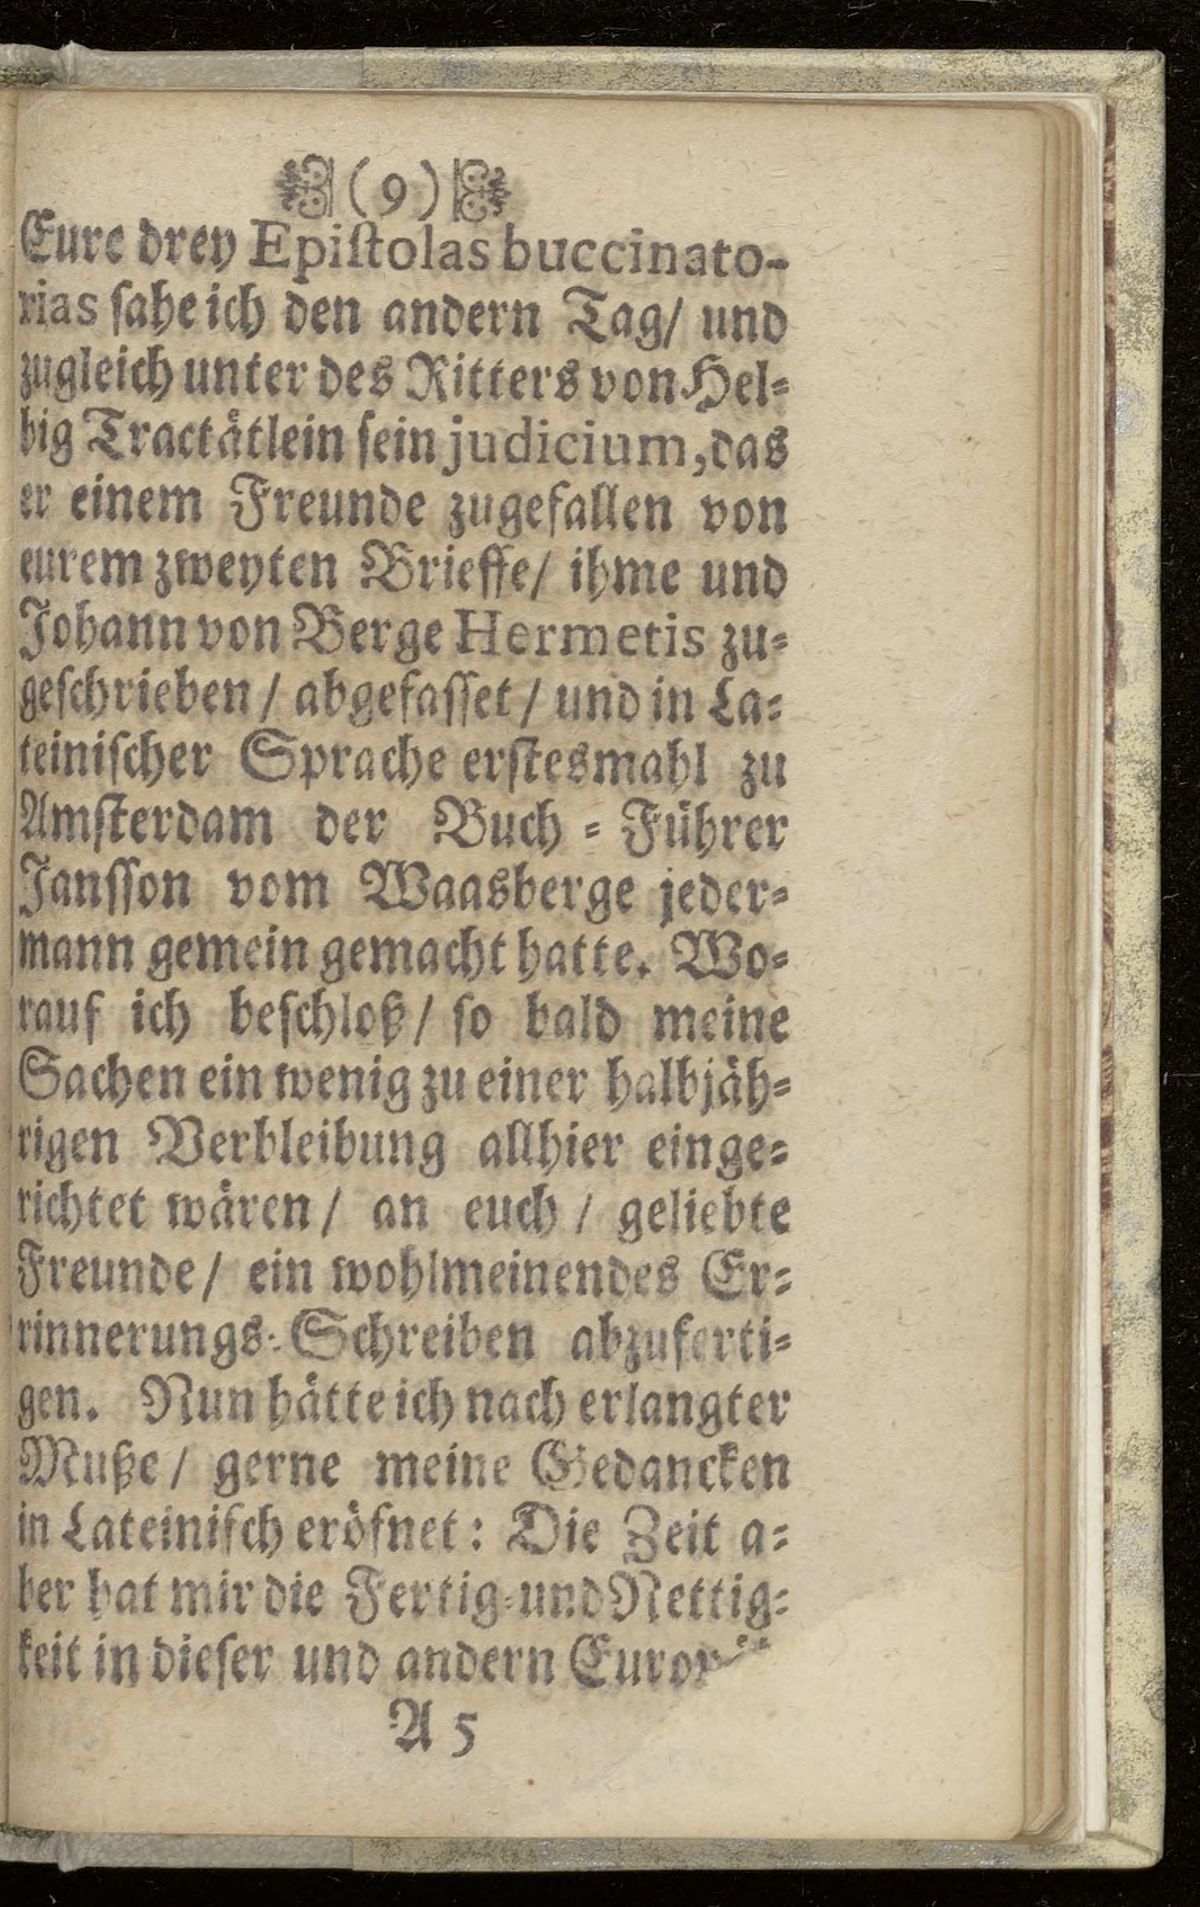 (9)
Eure drey Epiſtolas buccinato-
rias ſahe ich den andern Tag/ und
zugleich unter des Ritters von Hel⸗
big Tractätlein ſein judicium, das
er einem Freunde zugefallen von
eurem zweyten Brieffe/ ihme und
Johann von Berge Hermetis zu⸗
geſchrieben / abgefaſſet / und in La⸗
teiniſcher Sprache erſtesmahl zu
Amſterdam der Buch ⸗ Führer
Janſſon vom Waasberge jeder⸗
mann gemein gemacht hatte. Wo⸗
rauf ich beſchloß/ ſo bald meine
Sachen ein wenig zu einer halbjäh⸗
rigen Verbleibung allhier einge⸗
richtet wären/ an euch / geliebte
Freunde/ ein wohlmeinendes Er⸗
rinnerungs⸗Schreiben abzuferti⸗
gen. Nun hätte ich nach erlangter
Muße/ gerne meine Gedancken
in Lateiniſch eröfnet: Die Zeit a⸗
ber hat mir die Fertig⸗und Nettig⸗
keit in dieſer und andern
A 5